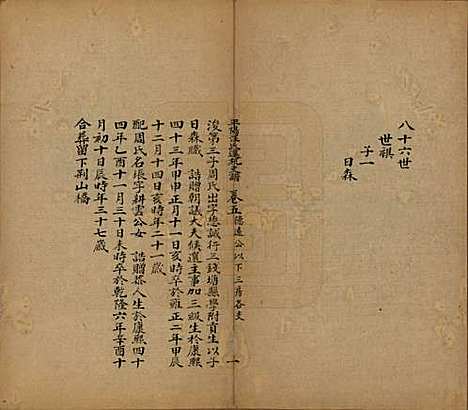 八十六世
世祺
子一
日森
平陽汪氏遷杭支譜 卷五 德遠公以下三房各支 一
浚第三子周氏出字懋誠行三錢塘縣學附貢生以子
日森職 誥贈朝議大夫候選主事加三級生於康熙
四十三年甲申正月十一日亥時卒於雍正二年甲辰
十二月十四日亥時年二十一歲
配周氏名 字耕雲公女 誥贈恭人生於康熙四十
四年乙酉十一月三十日未時卒於乾隆六年辛酉十
月初十日辰時年三十七歲
合葬留下荆山橋